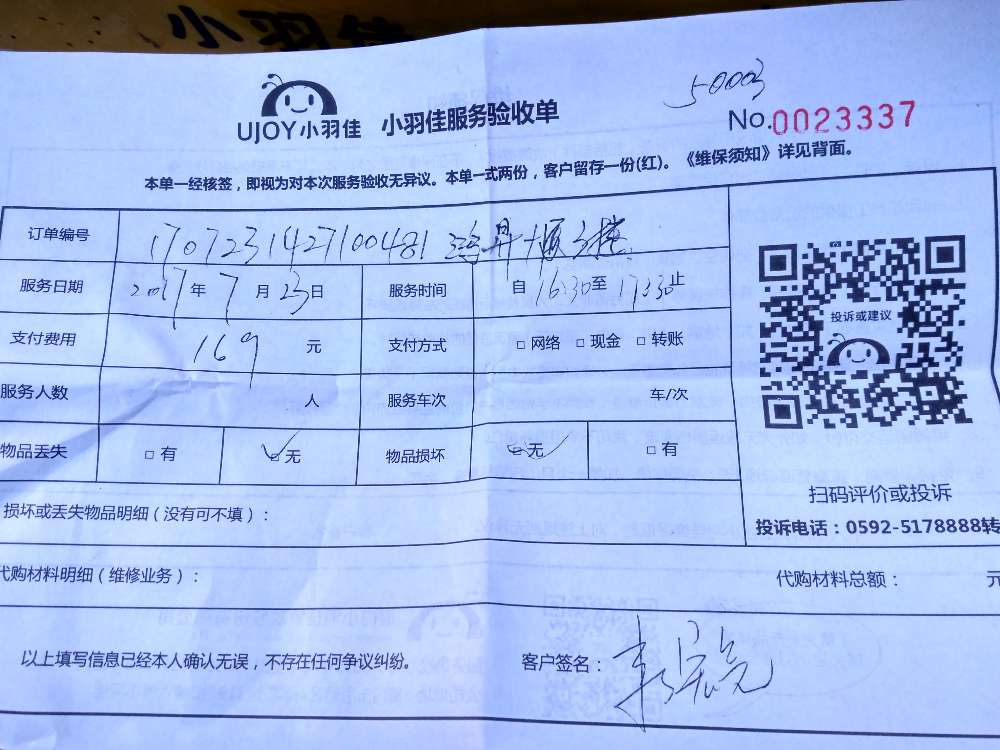 小羽佳
50003
UJOY小羽佳 小羽佳服务验收单
No.0023337
本单一经核签，即视为对本次服务验收无异议。本单一式两份，客户留存一份(红)。《维保须知》详见背面。
订单编号 1707231427100481
服务日期 2017年7月23日 服务时间 自16:30至17:30止
支付费用 169 元 支付方式 □网络 □现金 □转账
服务人数 人 服务车次 车/次
物品丢失 □有 ☑无 物品损坏 ☑无 □有
投诉或建议
扫码评价或投诉
投诉电话：0592-5178888转
损坏或丢失物品明细（没有可不填）：
代购材料明细（维修业务）： 代购材料总额： 元
以上填写信息已经本人确认无误，不存在任何争议纠纷。 客户签名：